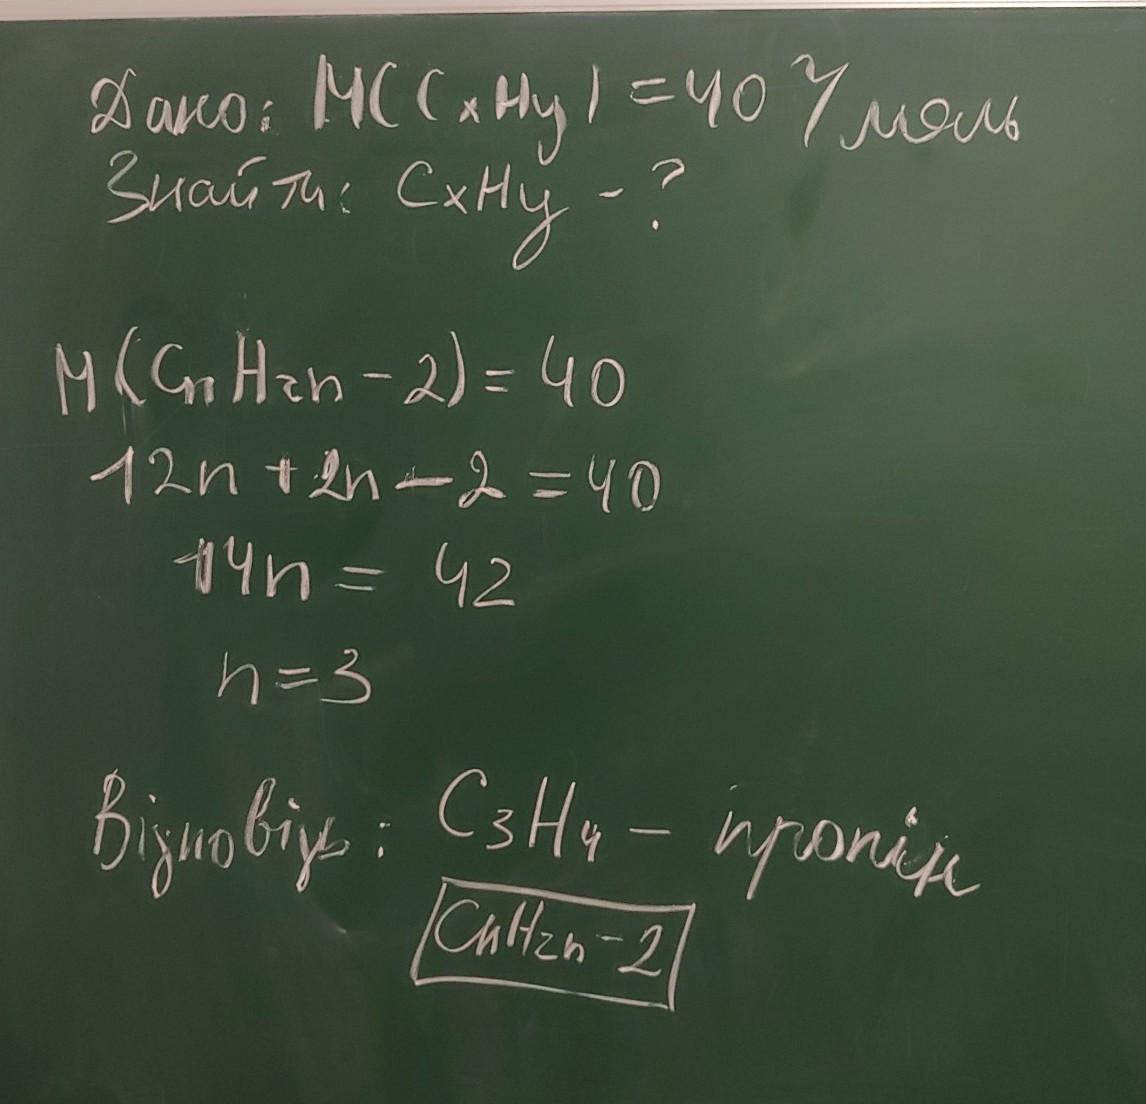 Дано: M(CxHy) = 40 г/моль
Знайти: CxHy - ?
M(CnH2n-2) = 40
12n + 2n - 2 = 40
14n = 42
n = 3
Відповідь: C3H4 - пропін
CnH2n-2